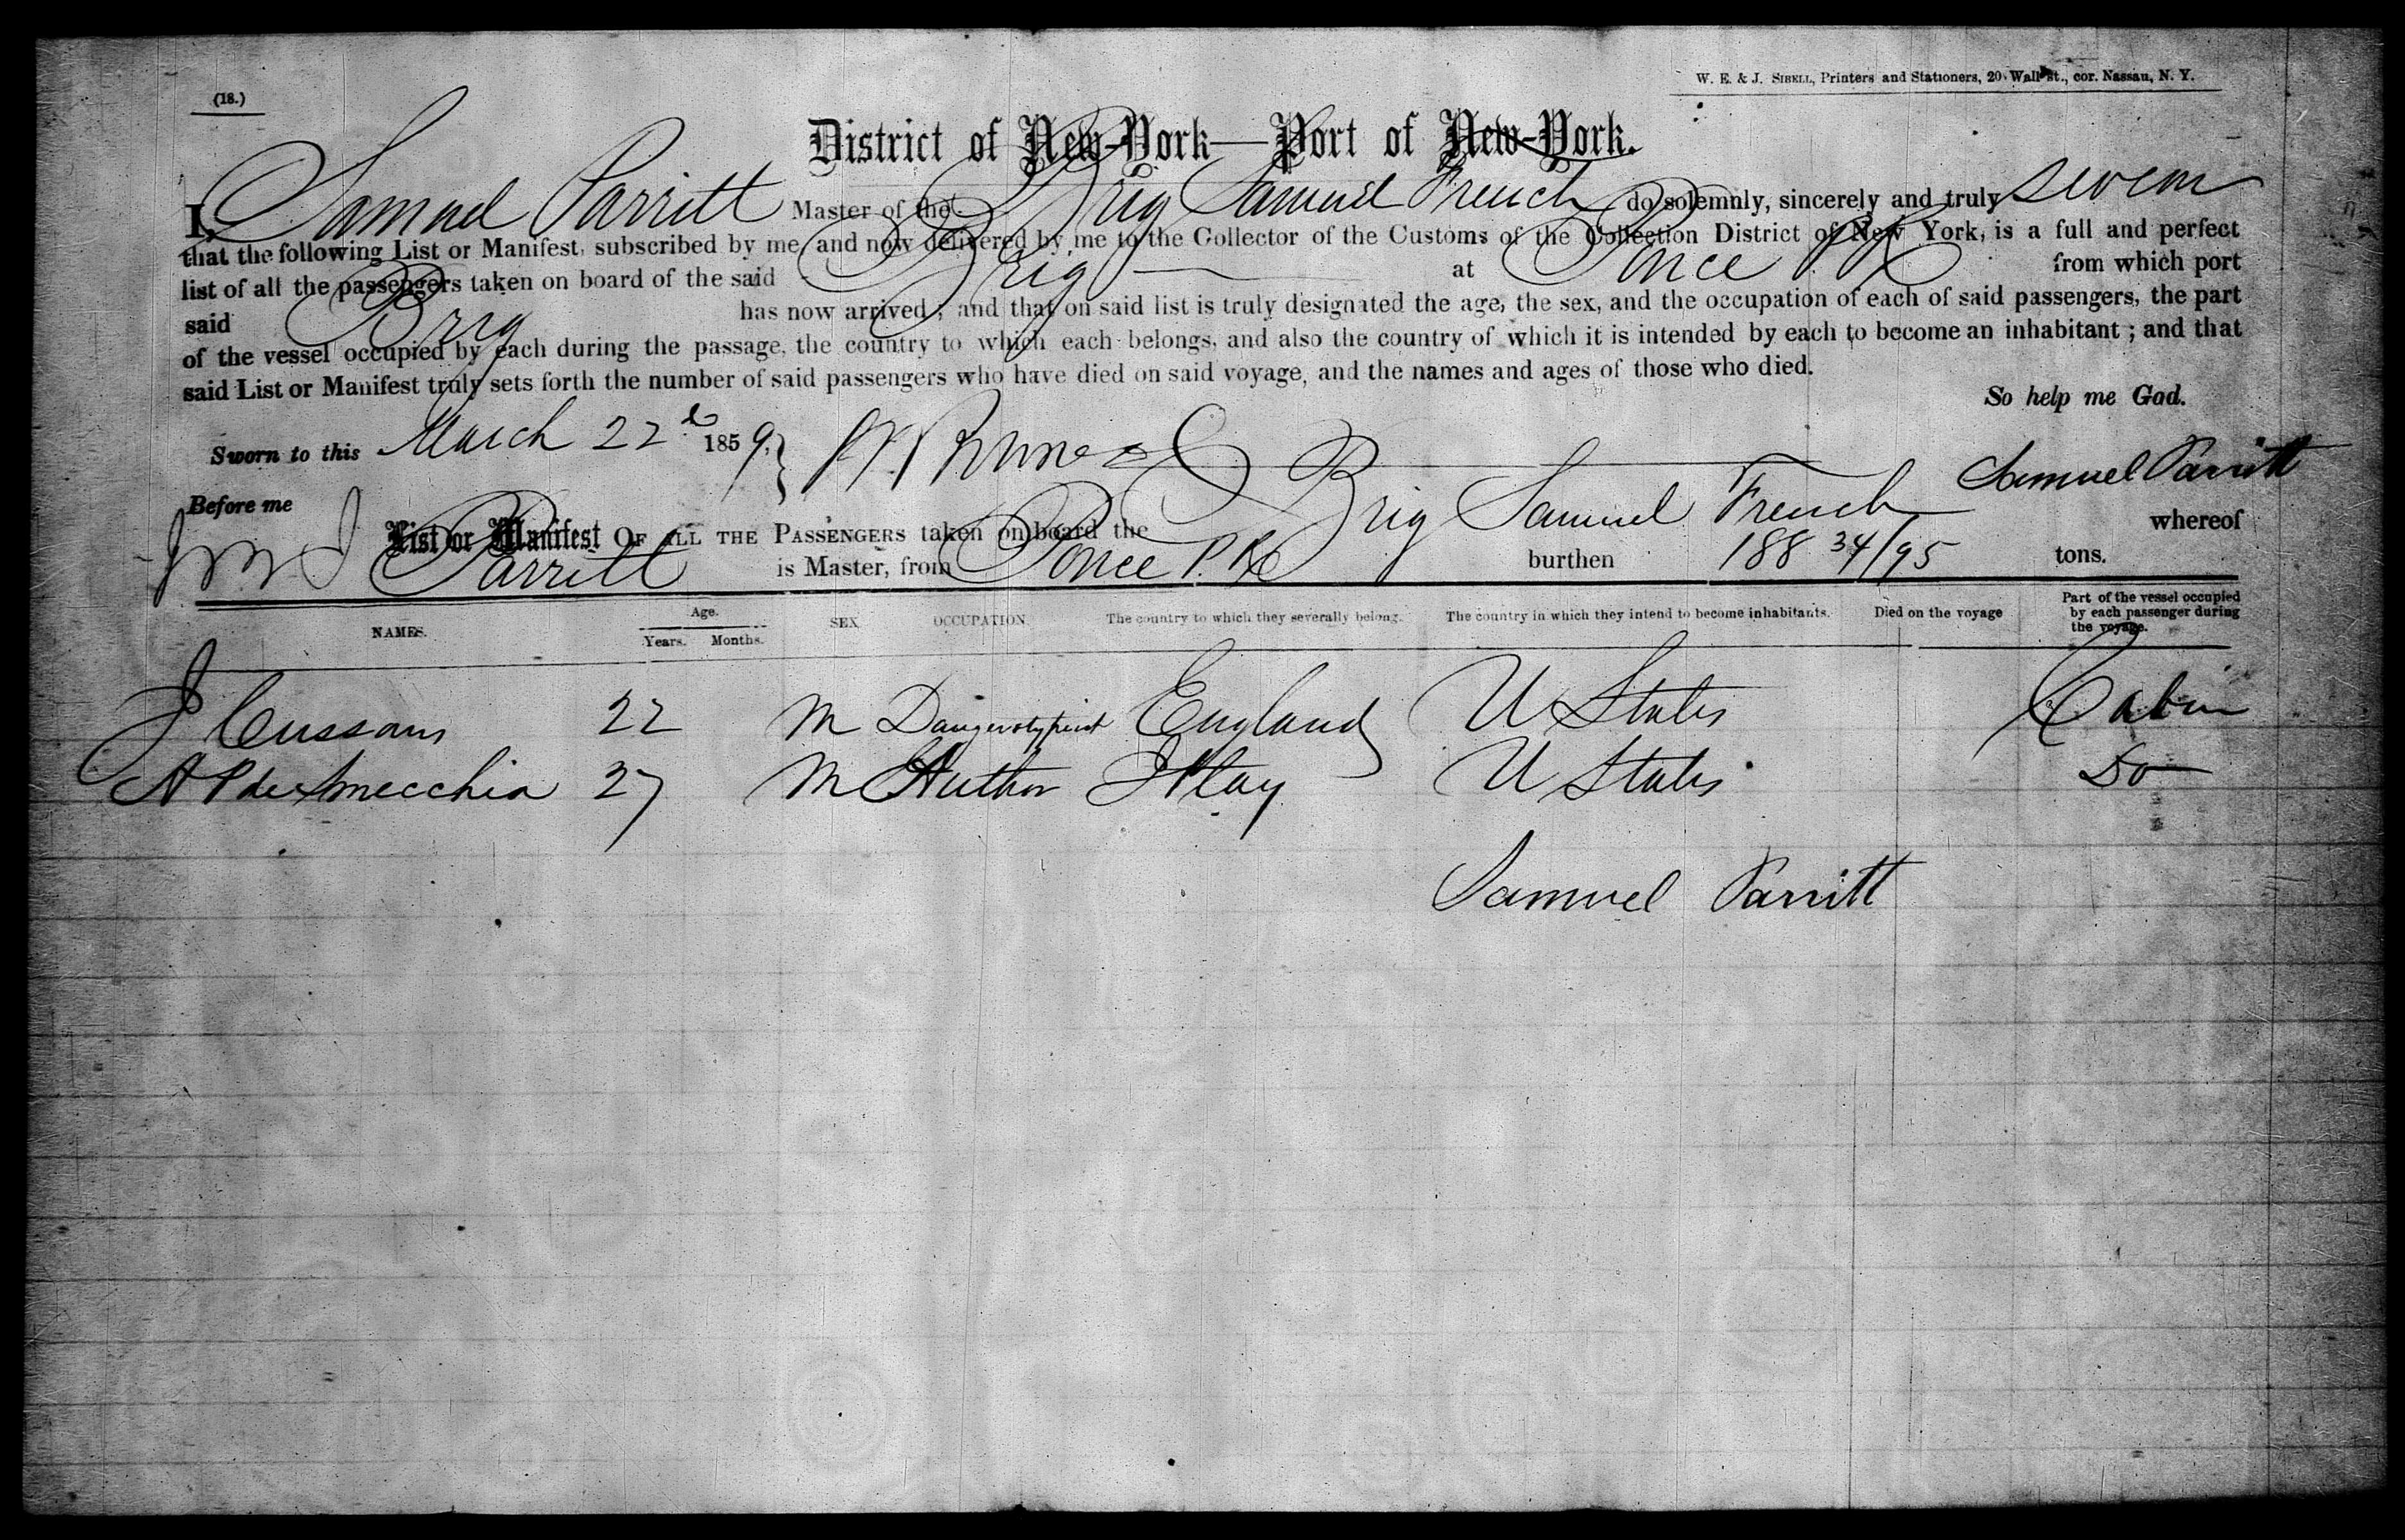 (18.)
W. E. & J. SIBELL, Printers and Stationers, 20 Wall st., cor. Nassau, N. Y.
District of New-York—Port of New-York.
I, Samuel Parritt Master of the Brig Samuel French do solemnly, sincerely and truly swear
that the following List or Manifest, subscribed by me, and now delivered by me to the Collector of the Customs of the Collection District of New York, is a full and perfect
list of all the passengers taken on board of the said Brig at Ponce P. R. from which port
said Brig has now arrived; and that on said list is truly designated the age, the sex, and the occupation of each of said passengers, the part
of the vessel occupied by each during the passage, the country to which each belongs, and also the country of which it is intended by each to become an inhabitant; and that
said List or Manifest truly sets forth the number of said passengers who have died on said voyage, and the names and ages of those who died.
So help me God.
Sworn to this March 22d 1859,
Samuel Parritt
Before me
List or Manifest OF ALL THE PASSENGERS taken on board the Brig Samuel French whereof
Parritt is Master, from Ponce P. R. burthen 188 34/95 tons.
NAMES. Age. Years. Months. SEX OCCUPATION The country to which they severally belong. The country in which they intend to become inhabitants. Died on the voyage Part of the vessel occupied by each passenger during the voyage.
J Cussans 22 M England U States Cabin
A P 27 M Author Itay U States Do
Samuel Parritt